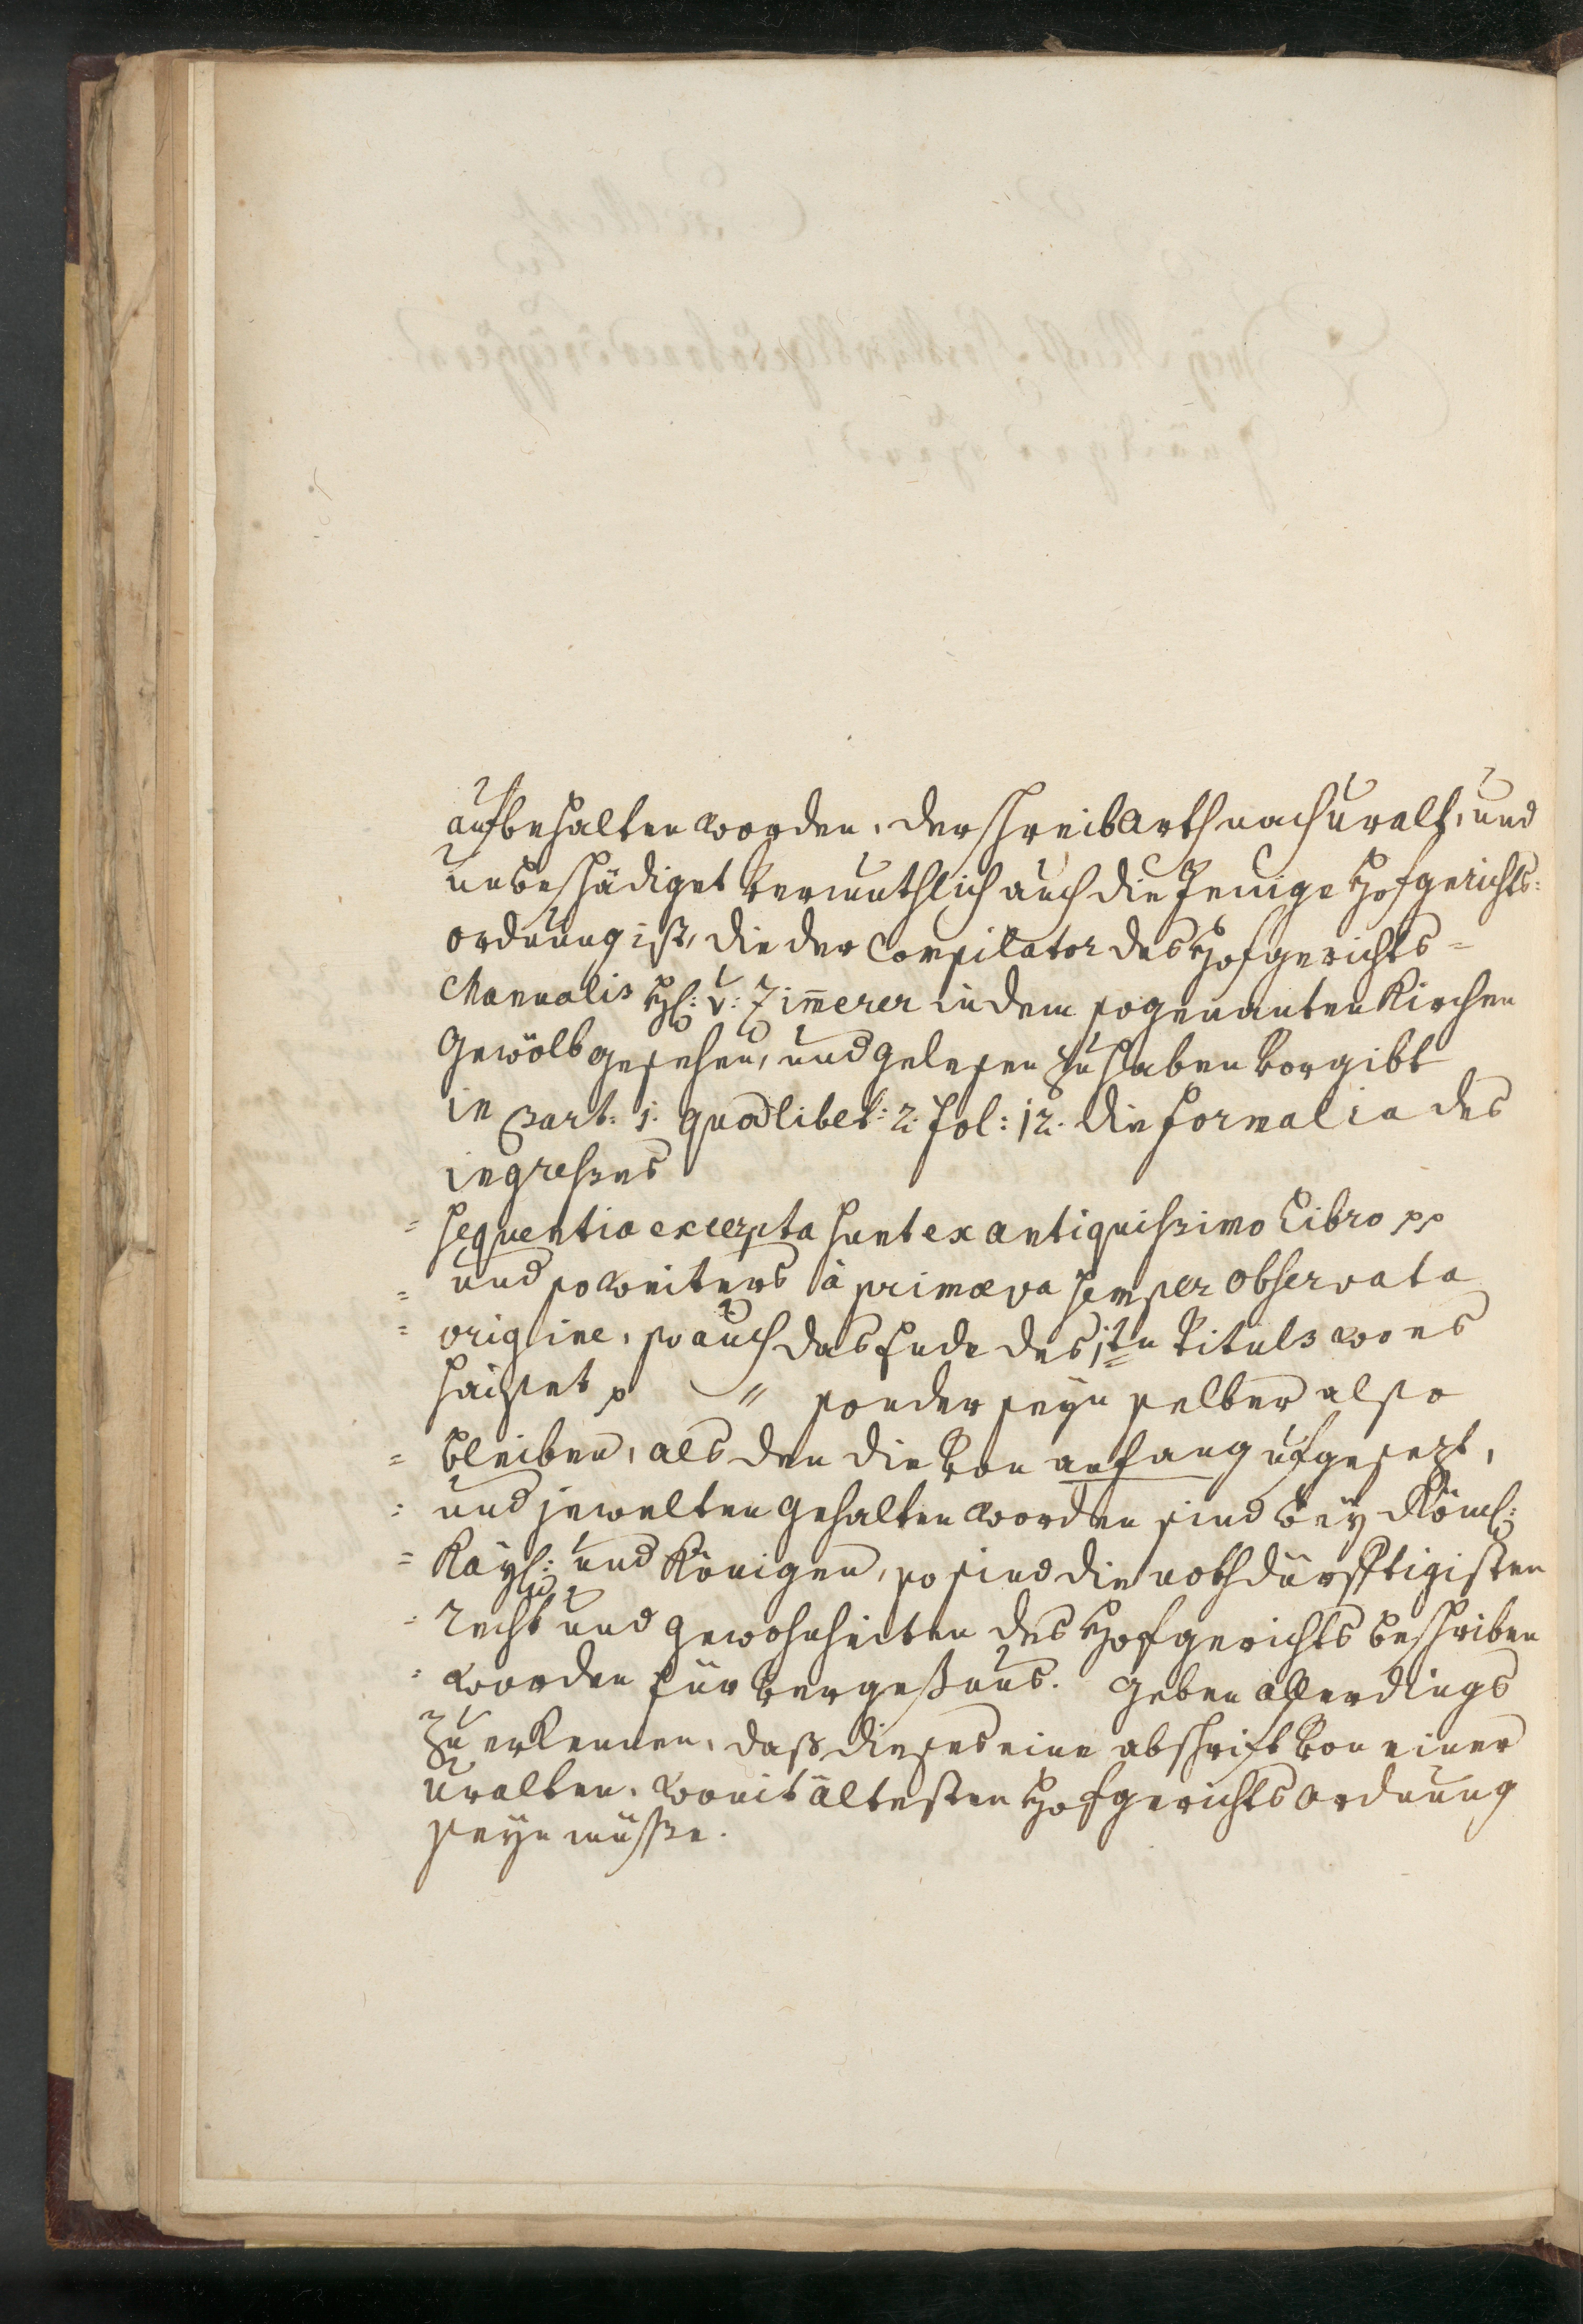 aufbehalten worden, der schreibarth nach uralt, und
unbeschädiget vermuthlich auch die Jenige Hofgerichts=
ordnung ist, die der Compilator des Hofgerichts=
Manualis H: v: Zim̄erer in dem sogenanten Kirchen
Gewölb gesehen, und gelesen zu haben vorgibt
in Part: 1. quodlibet: 2. fol: 12. die formalia des
ingresses
= sequentia excerpta sunt ex antiquissimo Libro pp
= und so weiters à primæva semper observata
= origine, so auch das Ende des 1ten Tituls wo es
haisset p " sonder seyn selber also
= bleiben, als den die von anfang ufgesezt,
= und jewelten gehalten worden sind bey Röml:
= Kayl: und Königen, so sind die nothdürfftigisten
= recht und gewohnheiten des Hofgerichts beschriben
= worden für vergessnus. Geben allerdings
zu erkennen, daß dieses eine abschrift von einer
uralten, womit ältesten Hofgerichts ordnung
seyn müsse.